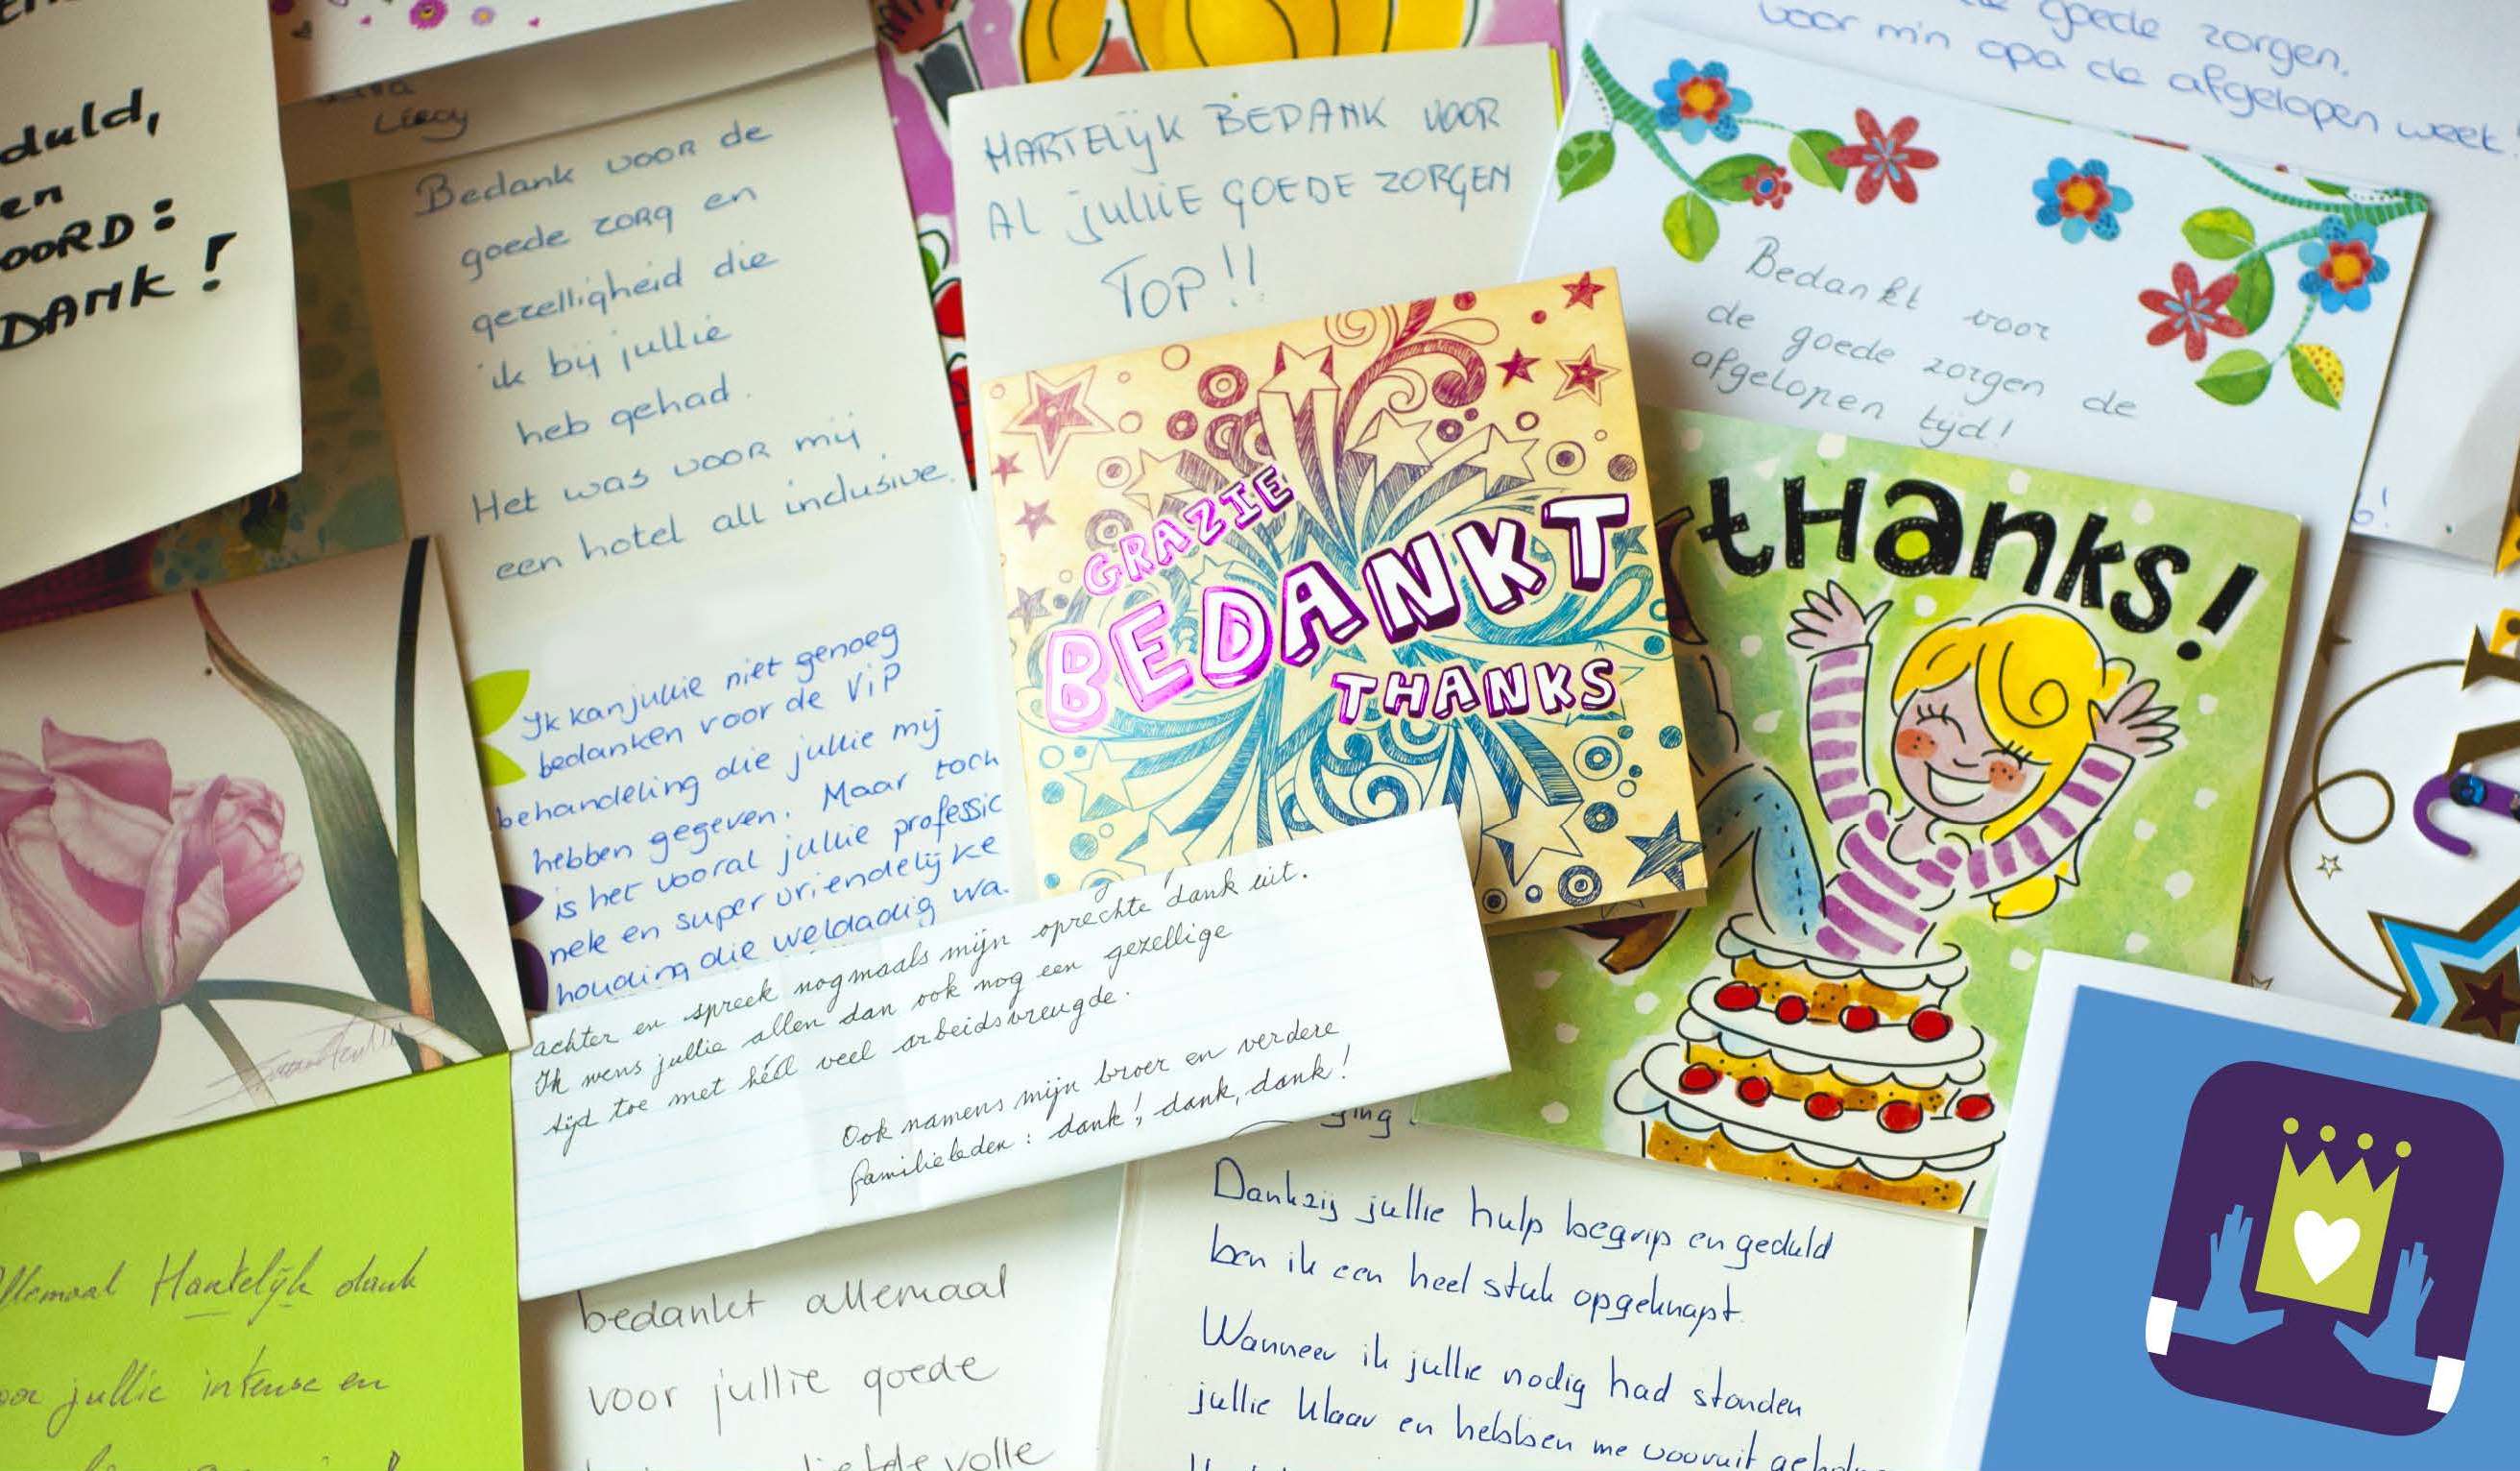 duld,
en
OORD:
DANK!
Liroy
Bedank voor de
goede zorg en
gezelligheid die
ik bij jullie
heb gehad.
Het was voor mij
een hotel all inclusive.
Ik kan jullie niet genoeg
bedanken voor de ViP
behandeling die jullie mij
hebben gegeven. Maar toch
is het vooral jullie professio
nele en super vriendelijke
houding die weldadig wa.
HARTELIJK BEDANK VOOR
AL jullIE GOEDE ZORGEN
TOP!!
goede zorgen.
voor m'n opa de afgelopen week.
Bedankt voor
de goede zorgen de
afgelopen tijd!
GRAZIE
BEDANKT
THANKS
tHanks!
achter en spreek nogmaals mijn oprechte dank uit.
Ik wens jullie allen dan ook nog een gezellige
tijd toe met héél veel arbeidsvreugde.
Ook namens mijn broer en verdere
familieleden: dank!, dank, dank!
allemaal Hartelijk dank
voor jullie intense en
bedankt allemaal
voor jullie goede
liefdevolle
ging
Dankzij jullie hulp begrip en geduld
ben ik een heel stuk opgeknapt.
Wanneer ik jullie nodig had stonden
jullie klaar en hebben me vooruit